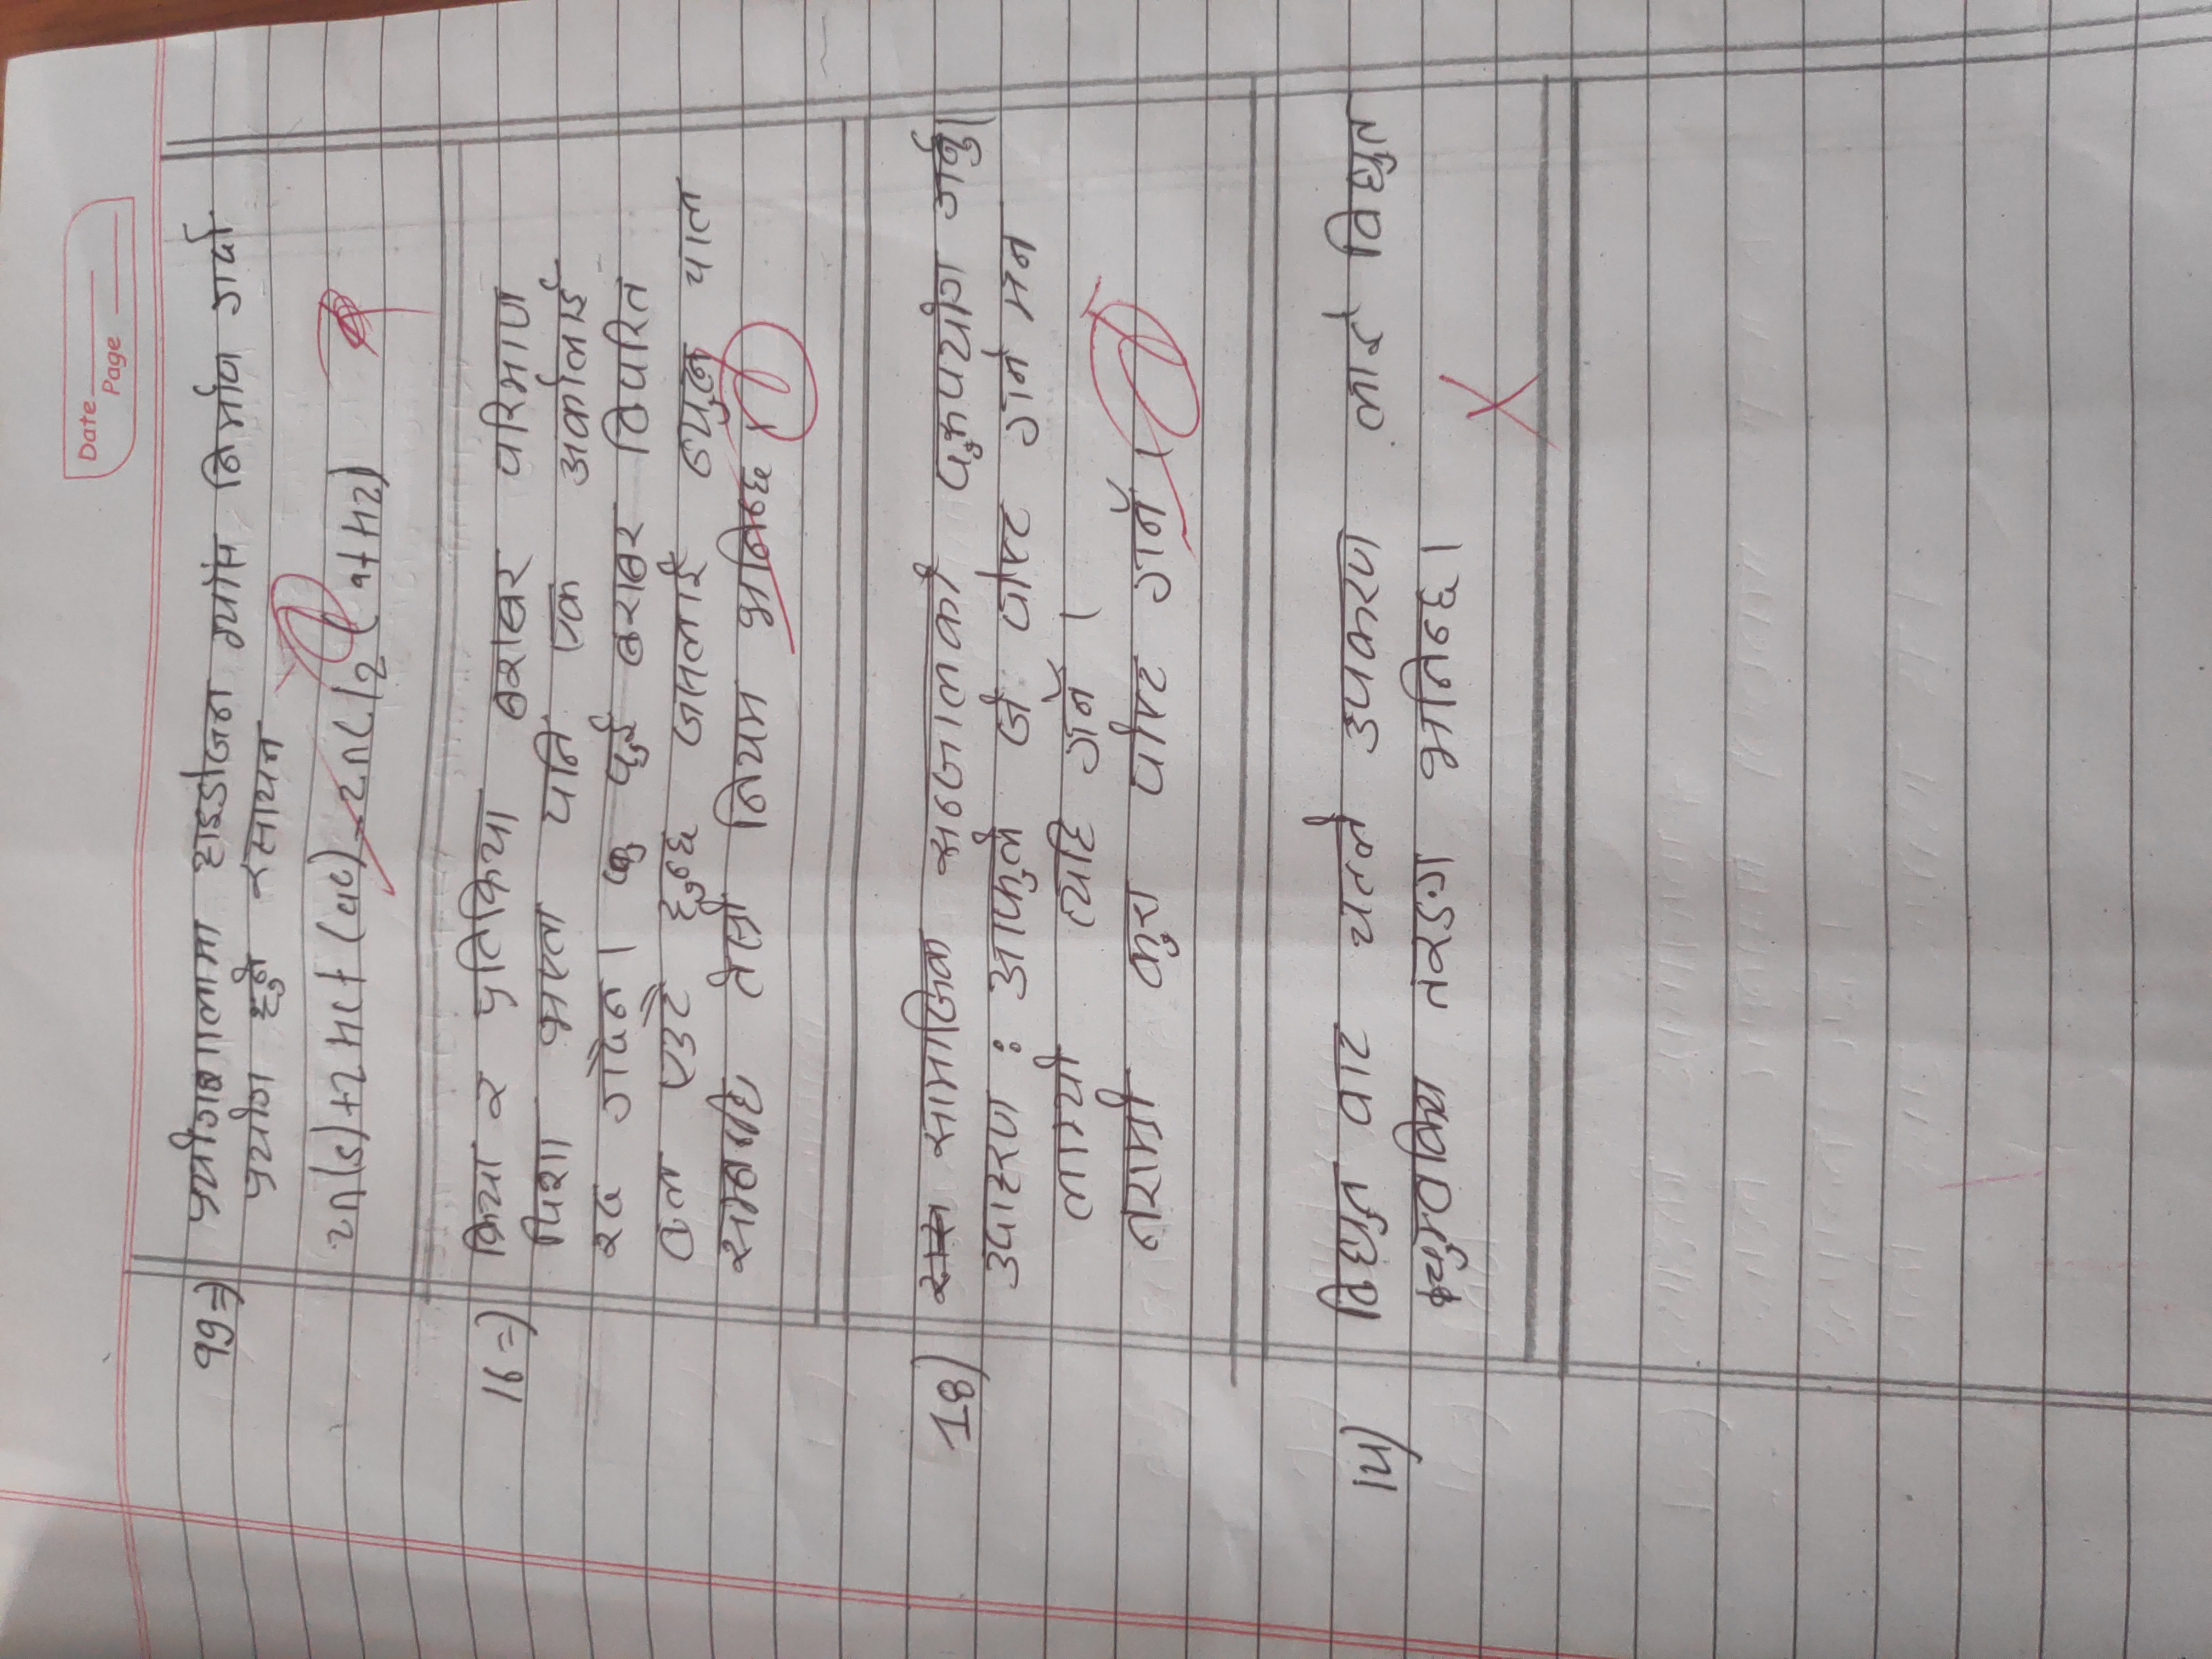 Date
Page
99⇒) प्रयोगशालामा हाइड्रोजन ग्याँस निर्माण गर्दा
प्रयोग हुने रसायन
2n(s)+2HCt (ac) → 2nCl2 ( at H2)
16=) क्रिया र प्रतिक्रिया बराबर परिमाण
दिशा भएता पनि एक अर्कालाई
रद गर्दैन। दुई बराबर विपरित
बल एउटै हुन्छ जसलाई न्युटन चाल
सम्बन्धि तेस्रो नियम भनिन्छ ।
18) सामाजिक सन्जालको दुरुपयोग गर्नु।
उदाहरण : आफुले जे पोष्ट गर्न मन
लाग्यो त्यहि गर्ने ।
नराम्रो कुरा पोष्ट गर्ने ।
14) विद्युत वाट चल्ने उपकरण लाई विद्युत
चुम्वकिय तरङ्ग भनिन्छ।